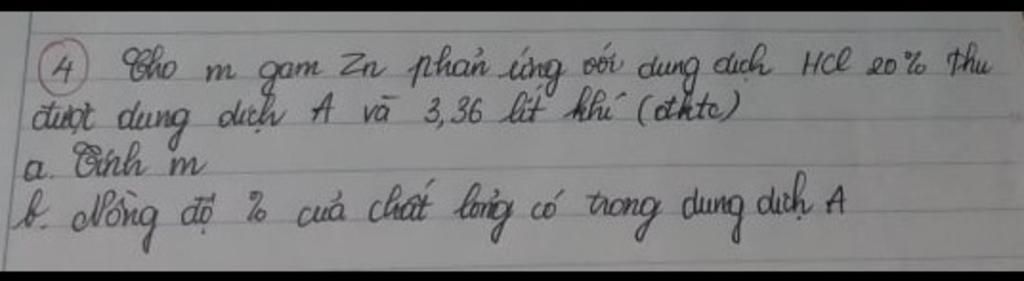 4 Cho m gam Zn phản ứng với dung dịch HCl 20% thu
được dung dịch A và 3,36 lít khí (đktc)
a. Tính m
b. Nồng độ % của chất lỏng có trong dung dịch A